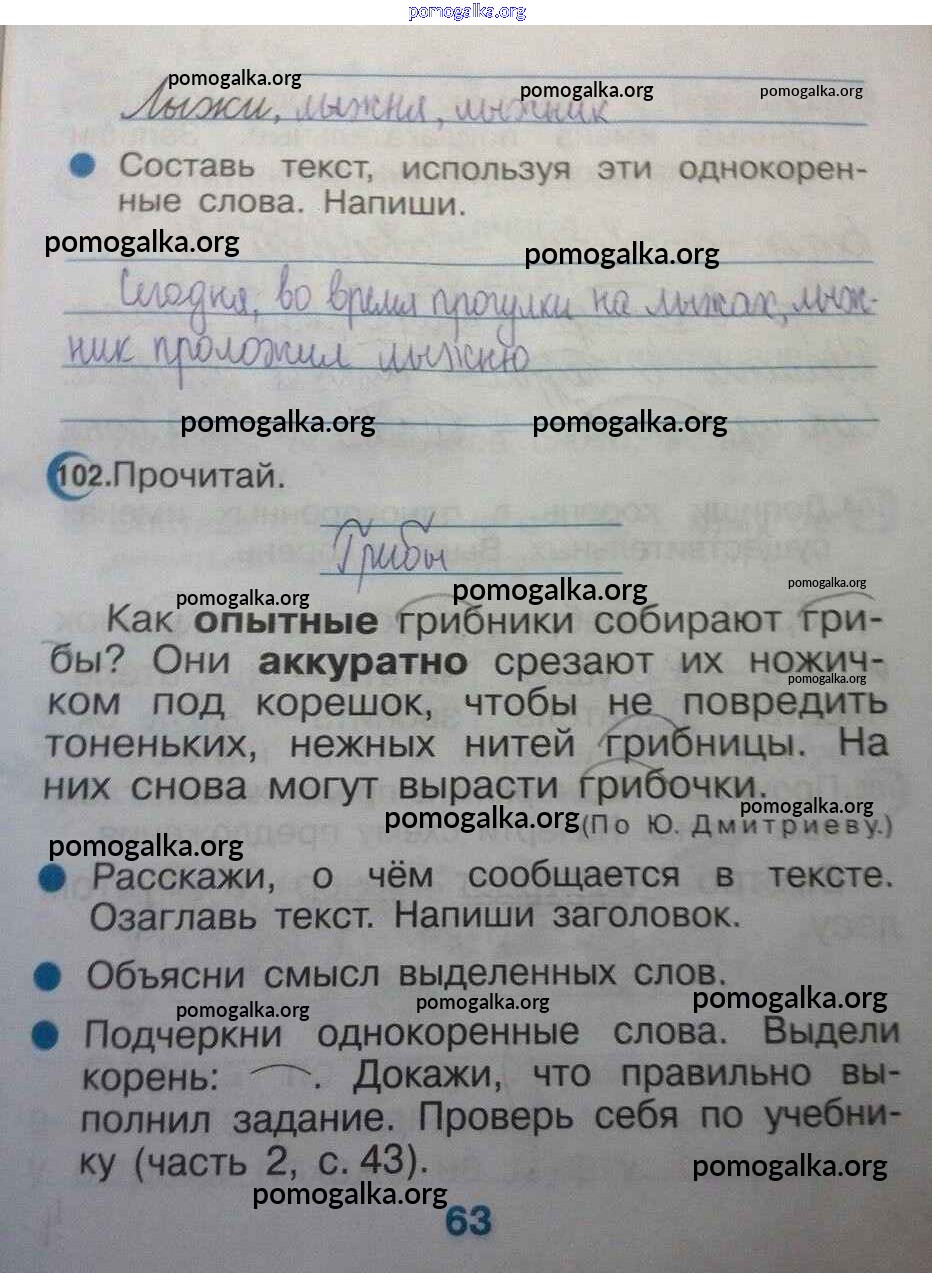 pomogalka.org
pomogalka.org pomogalka.org pomogalka.org
Лыжи, лыжня, лыжник
Составь текст, используя эти однокорен-
ные слова. Напиши.
pomogalka.org pomogalka.org
Сегодня, во время прогулки на лыжах, лыж-
ник проложил лыжню
pomogalka.org pomogalka.org
102. Прочитай.
Грибы
pomogalka.org pomogalka.org pomogalka.org
Как опытные грибники собирают гри-
бы? Они аккуратно срезают их ножич-
pomogalka.org
ком под корешок, чтобы не повредить
тоненьких, нежных нитей грибницы. На
них снова могут вырасти грибочки.
pomogalka.org pomogalka.org
(По Ю. Дмитриеву.)
pomogalka.org
Расскажи, о чём сообщается в тексте.
Озаглавь текст. Напиши заголовок.
Объясни смысл выделенных слов.
pomogalka.org pomogalka.org pomogalka.org
Подчеркни однокоренные слова. Выдели
корень: . Докажи, что правильно вы-
полнил задание. Проверь себя по учебни-
ку (часть 2, с. 43).
pomogalka.org pomogalka.org
63